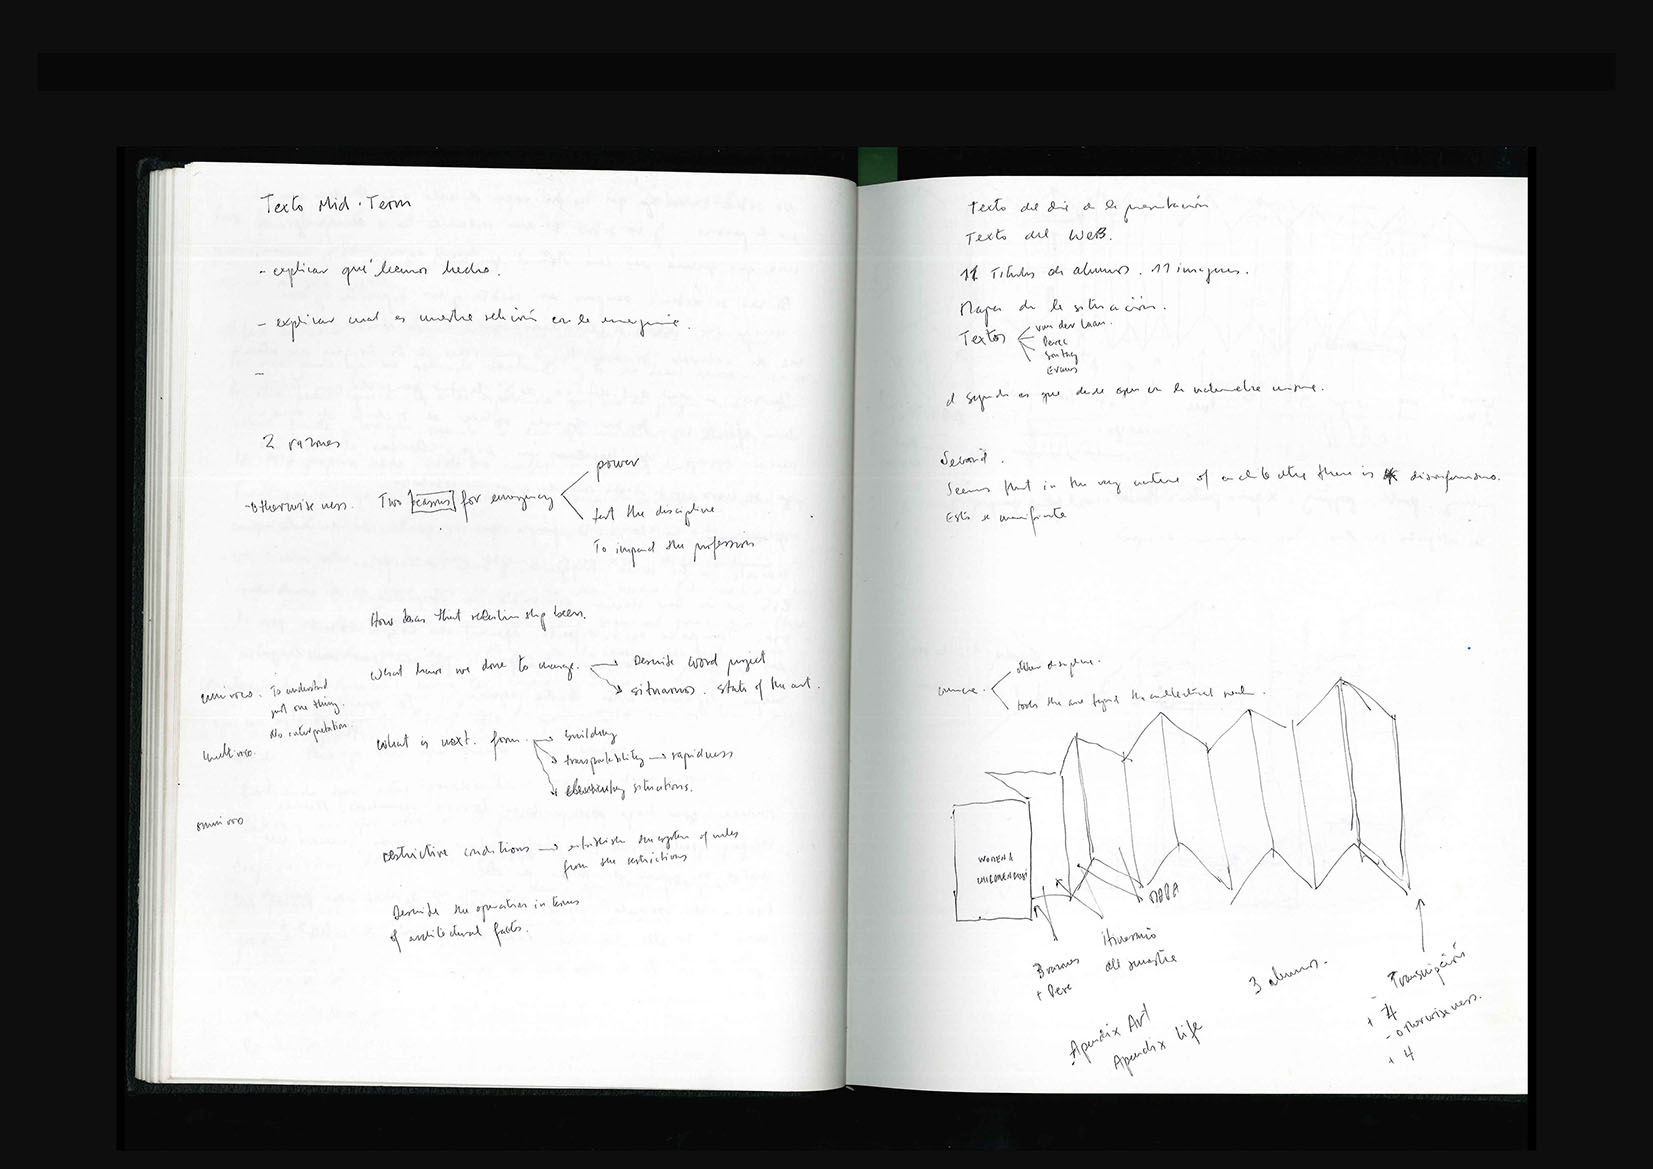 Texto Mid-Term
- explicar qué hemos hecho.
- explicar cual es nuestra relación con la
-
2 razones
- Otherwiseness. Two reasons for emergency
power
test the discipline
To impact the profession
How does that relationship been.
What have we done to change. → Describe word project
situarnos. state of the art.
univoco. To understand
just one thing.
No interpretation
multivoco.
What is next. form. → building
transportability → rapidness
situations.
omnivoco
restrictive conditions → system of rules
from the restrictions
Describe the operation in terms
of architectural facts.
Texto del dia de la presentación
Texto del WEB.
11 Titulos de alumnos. 11 imagenes.
Mapa de la situación.
Textos
van der Laan.
Perec
Sontag
Evans
el segundo es que desde
Second.
Seems that in the very nature of architecture there is
Esto se manifiesta
other discipline.
tools the are beyond the architectural
WOMEN &
CHILDREN FIRST
3 razones
+ Pere
itinerario
del semestre
3 alumnos.
- Transcripción
+ 4
- otherwiseness.
+ 4
- Apendix Art
Apendix Life